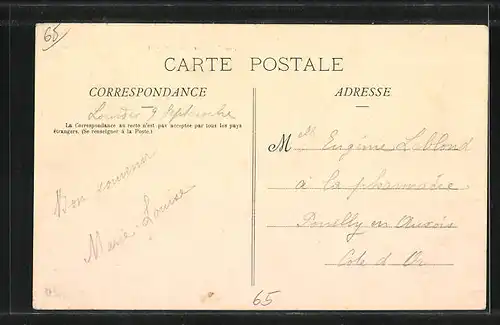 65
CARTE POSTALE
CORRESPONDANCE
Lourdes 9 Septembre
La Correspondance au recto n'est pas acceptée par tous les pays
étrangers. (Se renseigner à la Poste.)
Bon souvenir
Marie-Louise
ADRESSE
Melle Eugénie Leblond
à la pharmacie
Pouilly en Auxois
Cote d'Or
65